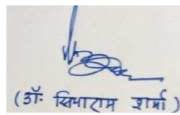 (डॉ॰ सियाराम शर्मा)